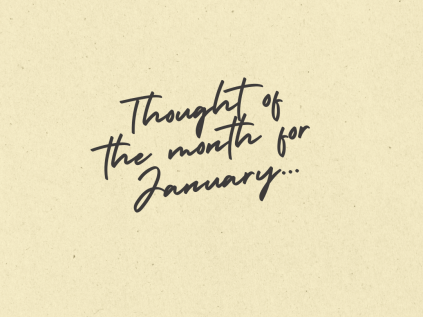 Thought of
the month for
January...